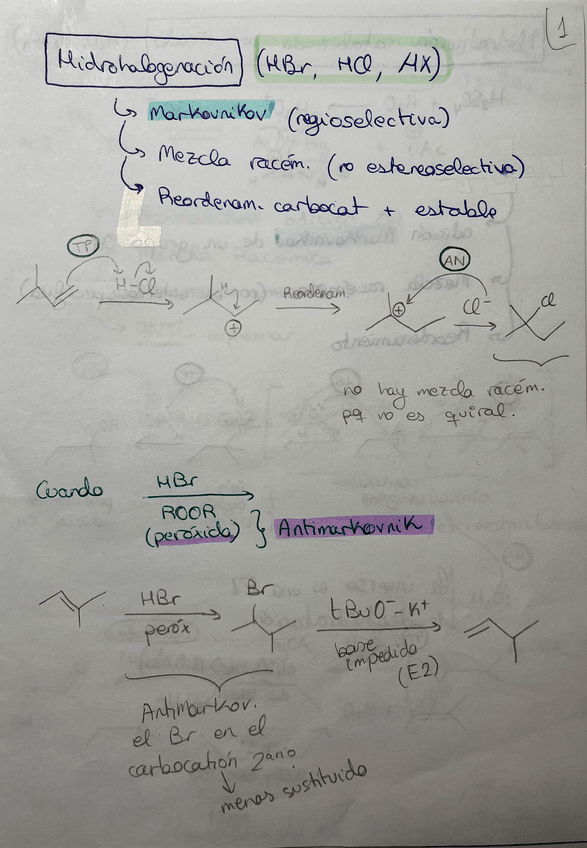 1
Hidrohalogenación (HBr, HCl, HX)
↳ Markovnikov (regioselectiva)
↳ Mezcla racém. (no estereoselectiva)
↳ Reordenam. carbocat + estable
TP
AN
H-Cl
H
⊕
Reordenam.
⊕
Cl⁻
Cl
no hay mezcla racém.
pq no es quiral.
Cuando HBr
ROOR
(peróxido) } Antimarkovnik
Br
HBr
peróx
tBuO⁻-K⁺
base
impedida
(E2)
Antimarkov.
el Br en el
carbocatión 2ario
↓
menos sustituido